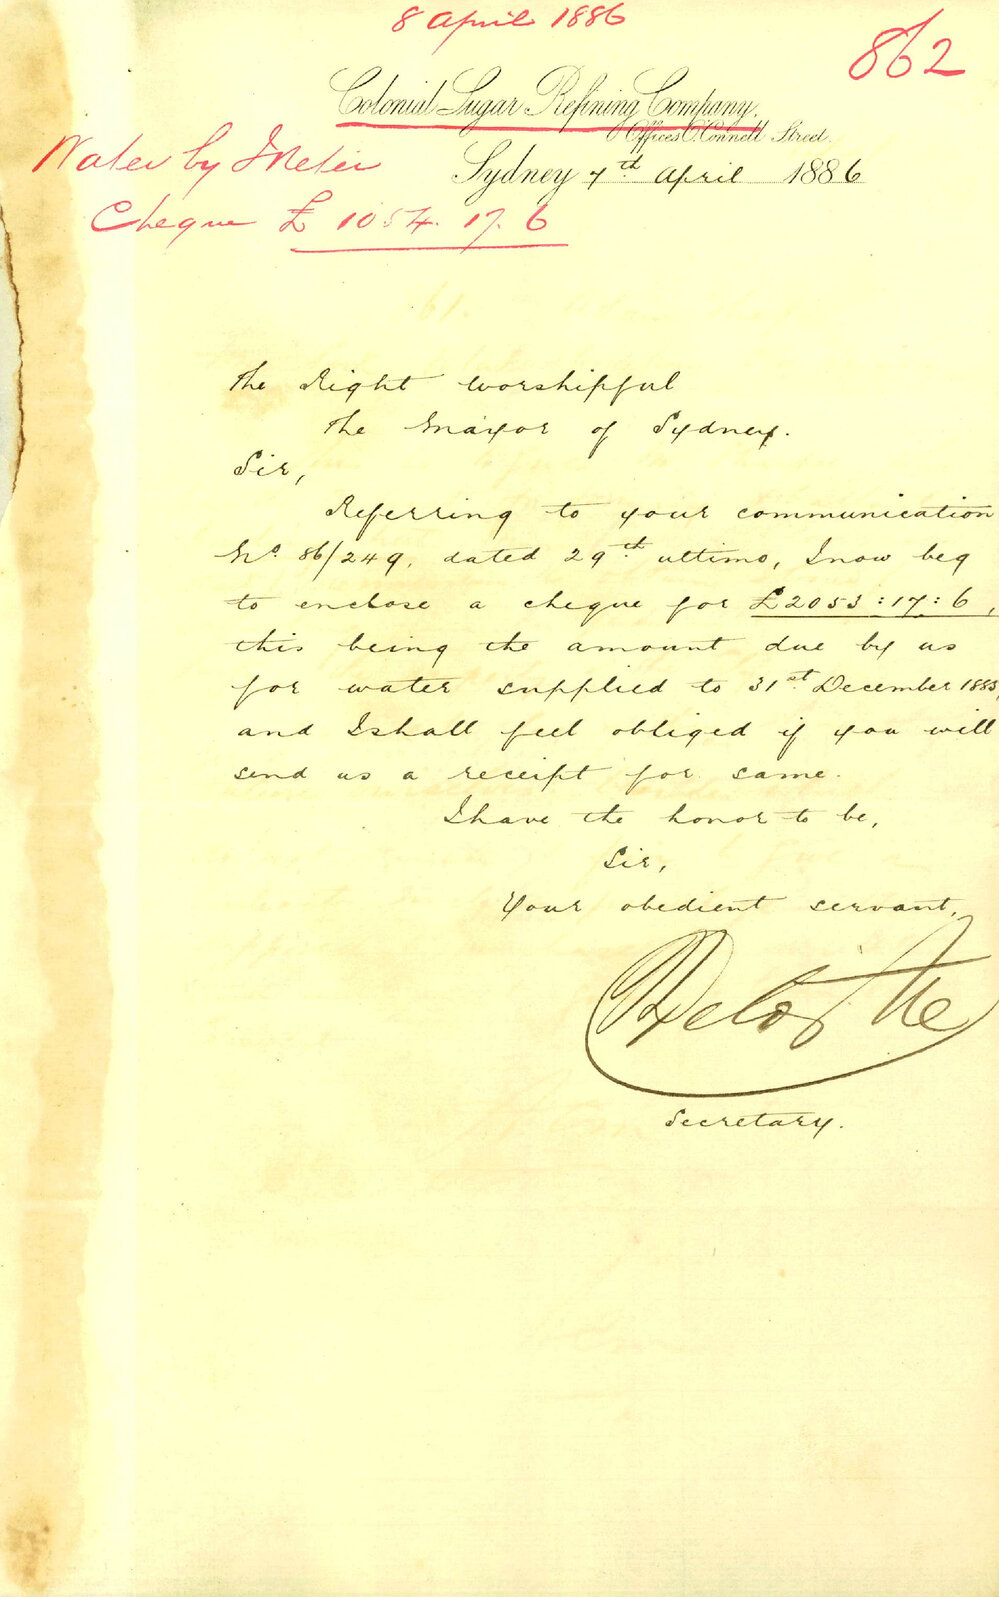 8 April 1886
862
Colonial Sugar Refining Company.
Offices O'Connell Street.
Water by Meter
Sydney 7th April 1886
Cheque £ 1054. 17. 6
The Right Worshipful
The Mayor of Sydney.
Sir,
Referring to your communication
No. 86/249, dated 29th ultimo, I now beg
to enclose a cheque for £2053:17:6,
this being the amount due by us
for water supplied to 31st December 1885,
and I shall feel obliged if you will
send us a receipt for same.
I have the honor to be,
Sir,
Your obedient servant,
Deloitte
Secretary.